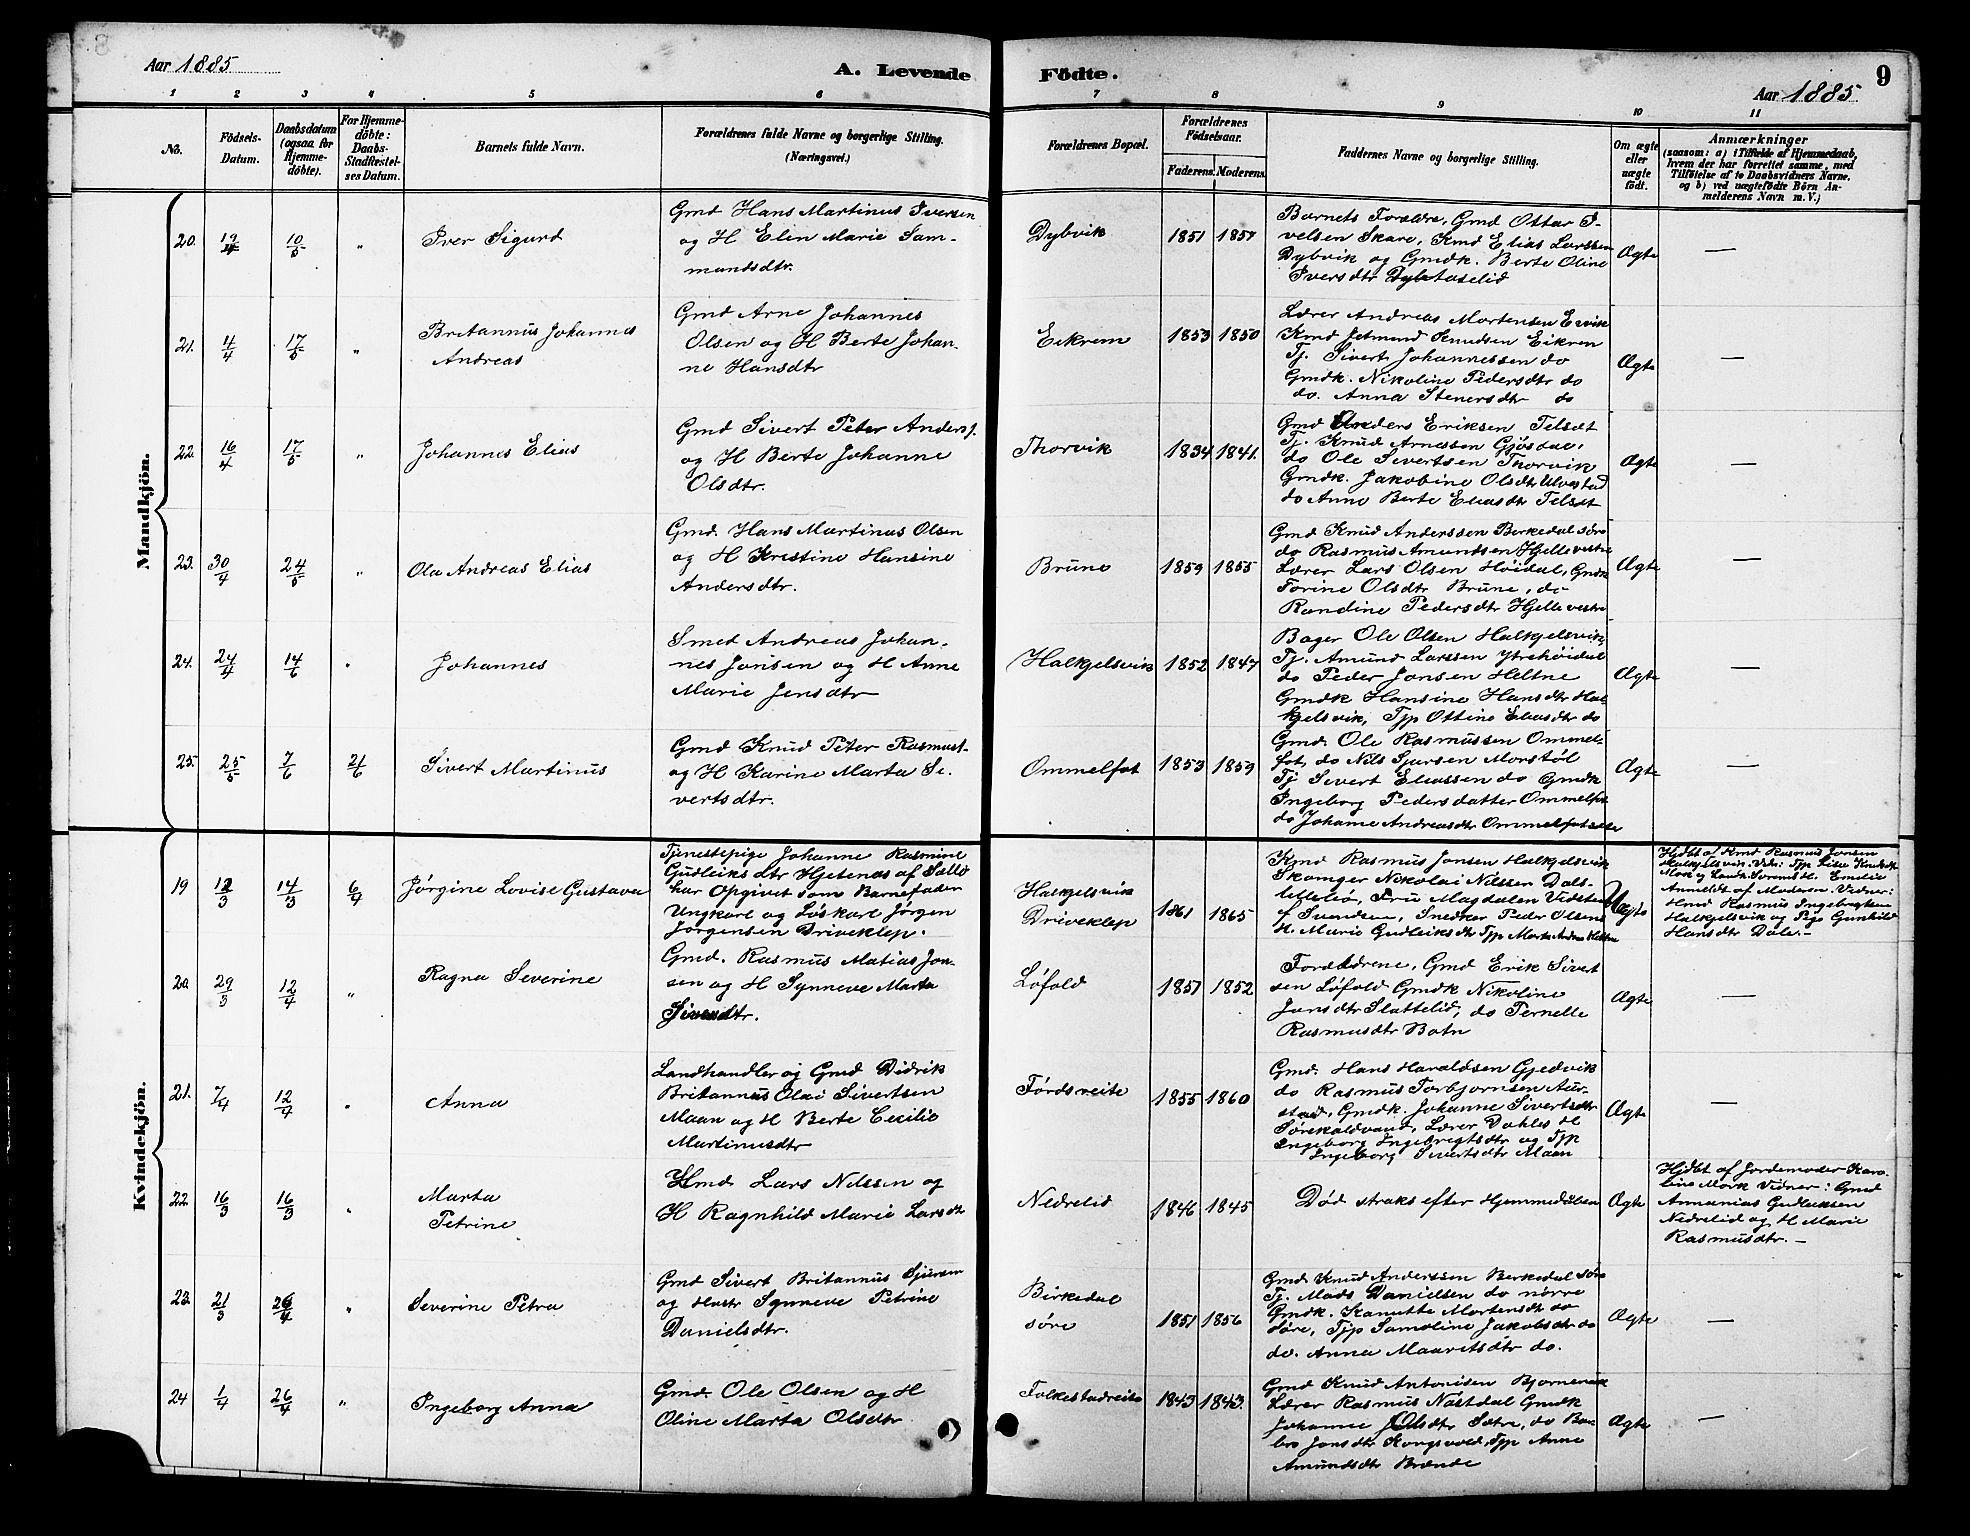 Aar 1885
A. Levende
Födte.
9
Aar 1885
1 2 3 4 5 6 7 8 9 10 11
No.
Födsels-Datum.
Daabsdatum (ogsaa for Hjemme-döbte).
For Hjemme-döbte: Daabs-Stadfæstel-ses Datum.
Barnets fulde Navn.
Forældrenes fulde Navne og borgerlige Stilling. (Næringsvei.)
Forældrenes Bopæl.
Forældrenes Födselsaar.
Faderens. Moderens.
Faddernes Navne og borgerlige Stilling.
Om ægte eller uægte födt.
Anmærkninger
(saasom: a) i Tilfælde af Hjemmedaab,
hvem der har forrettet samme, med
Tilföielse af to Daabsvidners Navne,
og b) ved uægtefödte Börn An-
melderens Navn m. V.)
Mandkjön.
20. 19/4 10/5 "
Iver Sigurd
Gmd Hans Martinus Iversen
og H Elen Marie Sam-
mundsdtr.
Dybvik
1851 1857
Barnets Forældre, Gmd Ottar I-
velsen Skare, Kmd Elias Larssen
Dybvik og Gmdk. Berte Oline
Iversdtr
Ægte —
21. 4/4 17/5 "
Britannus Johannes
Andreas
Gmd Arne Johannes
Olsen og H Berte Johan-
ne Hansdtr
Eikrem
1853 1850
Lærer Andreas Mortensen Ervik
Kmd Jetmund Knudsen Eikrem
Tj. Sivert Johannessen do
Gmdk. Nikoline Pedersdtr do
do. Anna Stenersdtr do
Ægte —
22. 16/4 17/5 "
Johannes Elias
Gmd Sivert Peter Anders.
og H Berte Johanne
Olsdtr.
Thorvik
1834 1841.
Gmd Anders Eriksen Telset
Tj. Knud Arnessen Gjøsdal,
do Ole Sivertsen Thorvik
Gmdk. Jakobine Olsdtr Ulvestad
do Anne Berte Eliasdtr Telset
Ægte —
23. 30/4 24/5 "
Ola Andreas Elias
Gmd. Hans Martinus Olsen
og H Kristine Hansine
Andersdtr.
Brune
1859 1855
Gmd Knud Anderssen Berkedal søre
do Rasmus Amundsen Hjelle vestre
Lærer Lars Olsen Høidal, Gmdk
Torine Olsdtr Brune, do
Randine Pedersdtr Hjelle vestre
Ægte —
24. 24/4 14/6 "
Johannes
Smed Andreas Johan-
nes Jonsen og H Anne
Marie Jensdtr
Halkjelsvik
1852 1847
Bager Ole Olsen Halkjelsvik,
Tj. Amund Larssen Ytrehøidal
do Peder Jonsen Heltne
Gmdk Hansine Hansdtr Hal-
kjelsvik, Tjp Ottine Eliasdtr do
Ægte —
25. 25/5 7/6 21/6
Sivert Martinus
Gmd Knud Peter Rasmus.
og H Karine Marta Si-
vertsdtr.
Ommelfot
1853 1859
Gmd. Ole Rasmussen Ommel-
fot, do Nils Sjursen Morstøl
Tj Sivert Eliassen do Gmdk
Ingeborg Pedersdatter Ommelfot
do Johanne Andreasdtr Ommelfotsæte
Ægte —
Kvindekjön.
19 12/3 14/3 6/4
Jørgine Lovise Gustava
Tjenestepige Johanne Rasmine
Gudleiks dtr Hjetenæs af Sælle
har Opgivet som Barnefader
Ungkarl og Løskarl Jørgen
Jørgensen Driveklep.
Halkjelsvik
Driveklep
1861 1865
Kmd Rasmus Jonsen Halkjelsvik
Skomger Nikolai Nilssen Dals-
Fru Magdalen
f Svendsen, Snedker Peder Olsens
H. Marie Gudleiksdtr Tjp Marte
Uægte
Hjdbt af Kmd Rasmus Jonsen
Halkjelsvik. Vidn: Tjp
Emilie
Anmeldt af Moderen. Vidner:
Hmd Rasmus Ingebrigtsen
Halkjelsvik og Pige Gunhild
Hansdtr Dale. —
20. 29/3 12/4 "
Ragna Severine
Gmd. Rasmus Matias Jon-
sen og H Synneve Marta
Siversdtr.
Løfold
1857 1852
Forældrene, Gmd Erik Sivert
sen Løfold Gmdk Nikoline
Jonsdtr Slattelid, do Pernelle
Rasmusdtr Botn
Ægte —
21. 7/4 12/4 "
Anna
Landhandler og Gmd Didrik
Britannus Olai Sivertsen
Maan og H Berte Cecilie
Martinusdtr
Førdsreite
1855 1860
Gmd. Hans Haraldsen Gjedvik
do Rasmus Torbjørnsen Aur-
stad, Gmdk. Johanne Sivertsdtr
Sørekaldvand, Lærer Dahles H
Ingeborg Ingebrigtsdtr og Tjp
Ingeborg Sivertsdtr Maan
Ægte —
22 16/3 16/3 "
Marta
Petrine
Hmd Lars Nilssen og
H Ragnhild Marie Larsdtr
Nedrelid
1846 1845
Død straks efter Hjemmedaaben
Ægte
Hjdbt af Jordemoder Karo-
line Mork Vidner: Gmd
Annanias Gudleiksen
Nedrelid og H Marie
Rasmusdtr. —
23. 21/3 26/4 "
Severine Petra
Gmd Sivert Britannus Sjursen
og Hustr Synneve Petrine
Danielsdtr.
Birkedal
søre
1851 1856
Gmd Knud Anderssen Berkedal søre
Tj. Mads Danielsen do nørre
Gmdk. Kanutte Mortensdtr do
søre, Tjp Samoline Jakobsdtr do
do. Anna Mauritsdtr do.
Ægte —
24 1/4 26/4 "
Ingeborg Anna
Gmd. Ole Olsen og H
Oline Marta Olsdtr
Folkestadreite
1843 1843.
Gmd Knud Antonisen Bjørnevik
Lærer Rasmus Nastdal Gmdk
Johanne Olsdtr Sætre, do Bar-
bro Jonsdtr Kongsvold, Tjp Anne
Amundsdtr Brænde
Ægte —